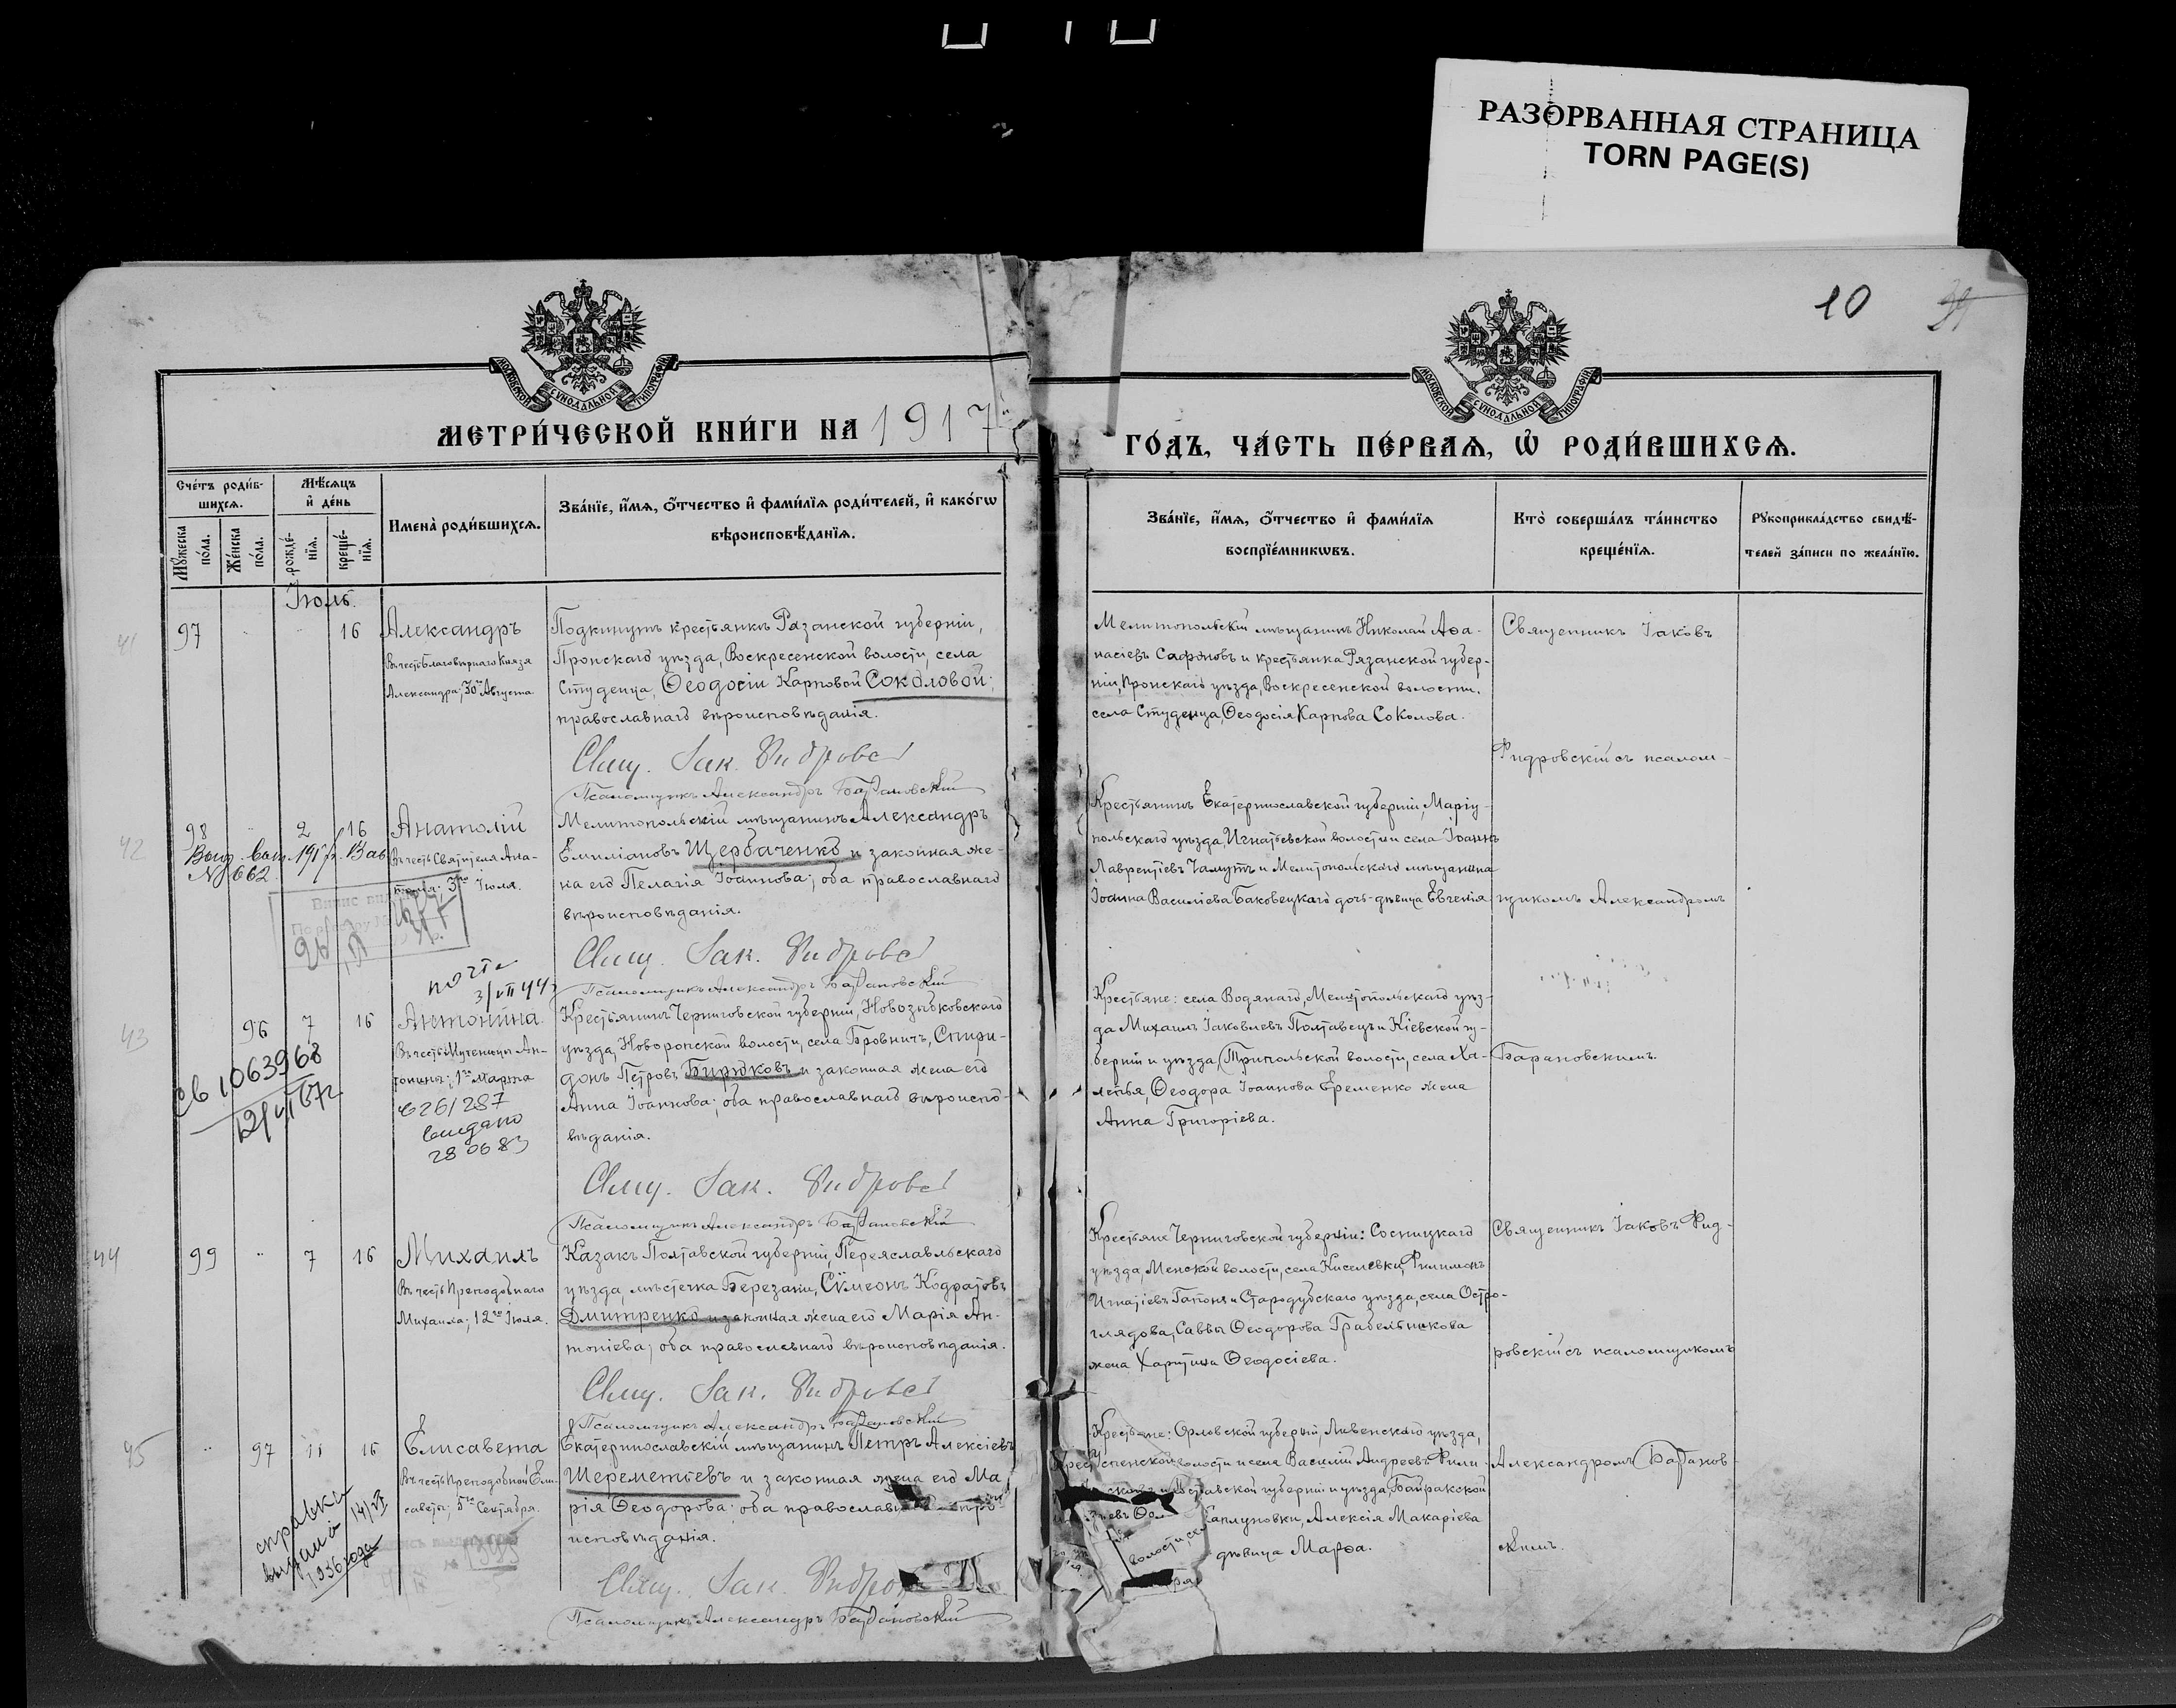 РАЗОРВАННАЯ СТРАНИЦА
TORN PAGE(S)
10
МОСКОВСКОЙ СѴНОДАЛЬНОЙ ТИПОГРАФІИ
МОСКОВСКОЙ СѴНОДАЛЬНОЙ ТИПОГРАФІИ
МЕТРИ́ЧЕСКОЙ КНИ́ГИ НА 1917
ГО́ДЪ, ЧА́СТЬ ПЕ́РВАЯ, Ѡ РОДИ́ВШИХСЯ.
Сче́тъ роди́в-
шихся.
Мѣ́сяцъ
и҆ де́нь
Мꙋ́жеска
по́ла.
Же́нска
по́ла.
рожде́-
нїя.
креще́-
нїя.
Имена̀ роди́вшихся.
Зва́нїе, и҆́мя, о҆́тчество и҆ фами́лїя роди́телей, и҆ како́гѡ
вѣроисповѣ́данїя.
Зва́нїе, и҆́мя, о҆́тчество и҆ фами́лїя
воспрїе́мникѡвъ.
Кто̀ соверша́лъ та́инство
креще́нїя.
Рꙋкоприкла́дство свидѣ́-
телей за́писи по жела́нїю.
Іюль.
41
97
16
Александръ
Въ честь Благовѣрнаго Князя
Александра; 30го Августа
Подкинутъ крестьянкѣ Рязанской губерніи,
Пронскаго уѣзда, Воскресенской волости, села
Студенца, Ѳеодосіи Карповой Соколовой;
православнаго вѣроисповѣданія.
Свящ. Іак. Фидровс
Псаломщикъ Александръ Барановскій
Мелитопольскій мѣщанинъ Николай Аѳа-
насіевъ Сафоновъ и крестьянка Рязанской губер-
ніи, Пронскаго уѣзда, Воскресенской волости,
села Студенца, Ѳеодосія Карпова Соколова.
Священникъ Іаковъ
Фидровскій съ псалом-
42
98
2
16
Анатолій
Въ честь Святителя Ана-
толія; 3го Іюля.
№ 662
Мелитопольскій мѣщанинъ Александръ
Емиліановъ Щербаченко и законная же-
на его Пелагія Іоаннова; оба православнаго
вѣроисповѣданія.
Свящ. Іак. Фидровс
Псаломщикъ Александръ Барановскій
Крестьянинъ Екатеринославской губерніи, Маріу-
польскаго уѣзда, Игнатьевской волости и села Іоаннъ
Лаврентіевъ Чамутъ и Мелитопольскаго мѣщанина
Іоанна Василіева Баковецкаго дочь-дѣвица Евгенія
щикомъ Александромъ
3/VII 44
43
96
7
16
Антонина.
Въ честь Мученицы Ан-
тонины; 1го Марта
СВ 1063968
12/VI 67г
626/287
видано
28 06 83
Крестьянинъ Черниговской губерніи, Новозыбковскаго
уѣзда, Новоропской волости, села Бровничъ, Спири-
донъ Петровъ Бирюковъ и законная жена его
Анна Іоаннова; оба православнаго вѣроиспо-
вѣданія.
Свящ. Іак. Фидровс
Псаломщикъ Александръ Барановскій
Крестьяне: села Водянаго, Мелитопольскаго уѣз-
да Михаилъ Іаковлевъ Полтавецъ и Кіевской гу-
берніи и уѣзда, Трипольской волости, села Ха-
лепья, Ѳеодора Іоаннова Еременко жена
Анна Григоріева.
Барановскимъ.
44
99
7
16
Михаилъ
Въ честь Преподобнаго
Михаила; 12го Іюля.
Казакъ Полтавской губерніи, Переяславльскаго
уѣзда, мѣстечка Березани, Сѵмеонъ Кодратовъ
Дмитренко и законная жена его Марія Ан-
тоніева; оба православнаго вѣроисповѣданія.
Свящ. Іак. Фидровс
Псаломщикъ Александръ Барановскій
Крестьяне Черниговской губерніи: Сосницкаго
уѣзда, Менской волости, села Киселевки, Филимонъ
Игнатіевъ Гапонъ и Стародубскаго уѣзда, села Остро-
глядова, Саввы Ѳеодорова Грабельникова
жена Харитина Ѳеодосіева.
Священникъ Іаковъ Фид-
ровскій съ псаломщикомъ
45
97
11
16
Елисавета
Въ честь Преподобной Ели-
саветы; 5го Сентября.
справка
выдана 14/VI
1936 года
Екатеринославскій мѣщанинъ Петръ Алексіевъ
Шереметіевъ и законная жена его Ма
рія Ѳеодорова; оба православн
исповѣданія.
Свящ. Іак. Фидро
Псаломщикъ Александръ Барановскій
Крестьяне: Орловской губерніи, Ливенскаго уѣзда,
Успенской волости и села Василій Андреевъ Фили-
авской губерніи и уѣзда, Байракской
Каплуновки, Алексія Макаріева
волости, сел
дѣвица Марѳа.
Александромъ Баранов-
скимъ.